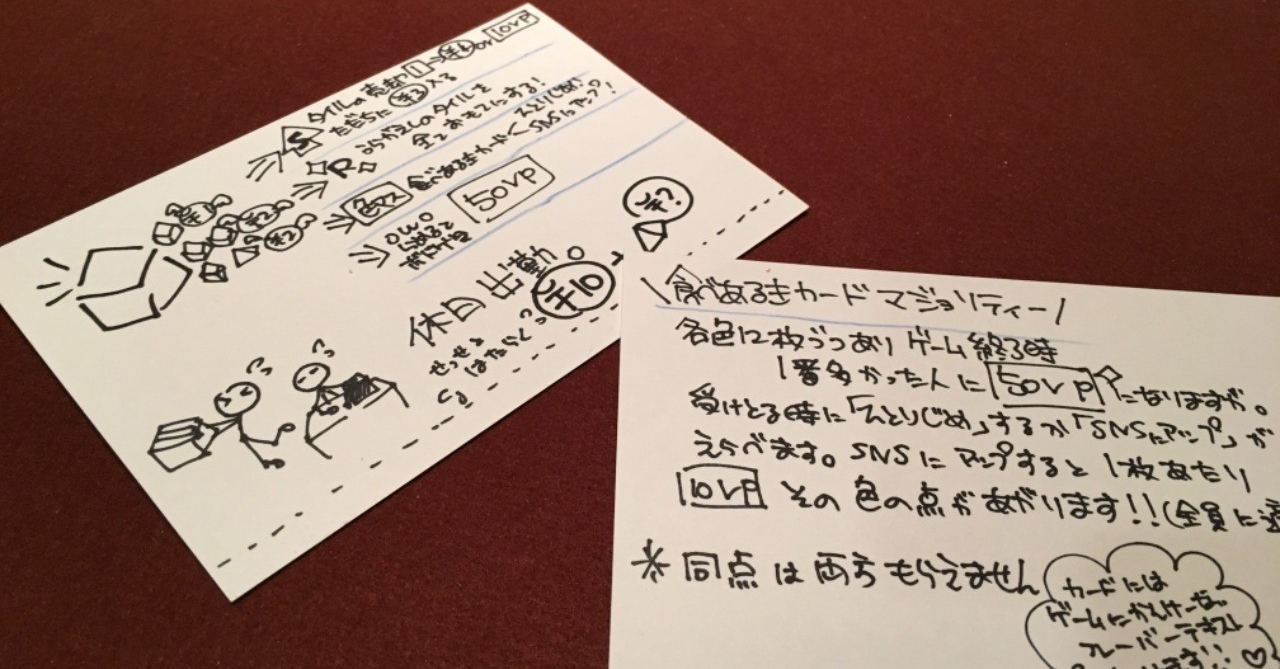 タイルの売却 1→¥4 or 10VP
S ただちに ¥3 入る
R うらがえしのタイルを
全ておもてにする!
色マス 食べあるきカード< ひとりじめ
SNSにアップ!
50VP
¥1
¥2
¥2
¥?
休日出勤。
¥10
せっせと
はたらく
\食べあるきカード マジョリティー/
各色12枚づつあり ゲーム終了時
1番多かった人に 50VP になりますが。
受けとる時に「ひとりじめ」するか「SNSにアップ」が
えらべます。SNSにアップすると 1枚あたり
10VP その色の点があがります!!(全員に
*同点は両方もらえません
カードには
ゲームにかんけーない
フレーバーテキスト